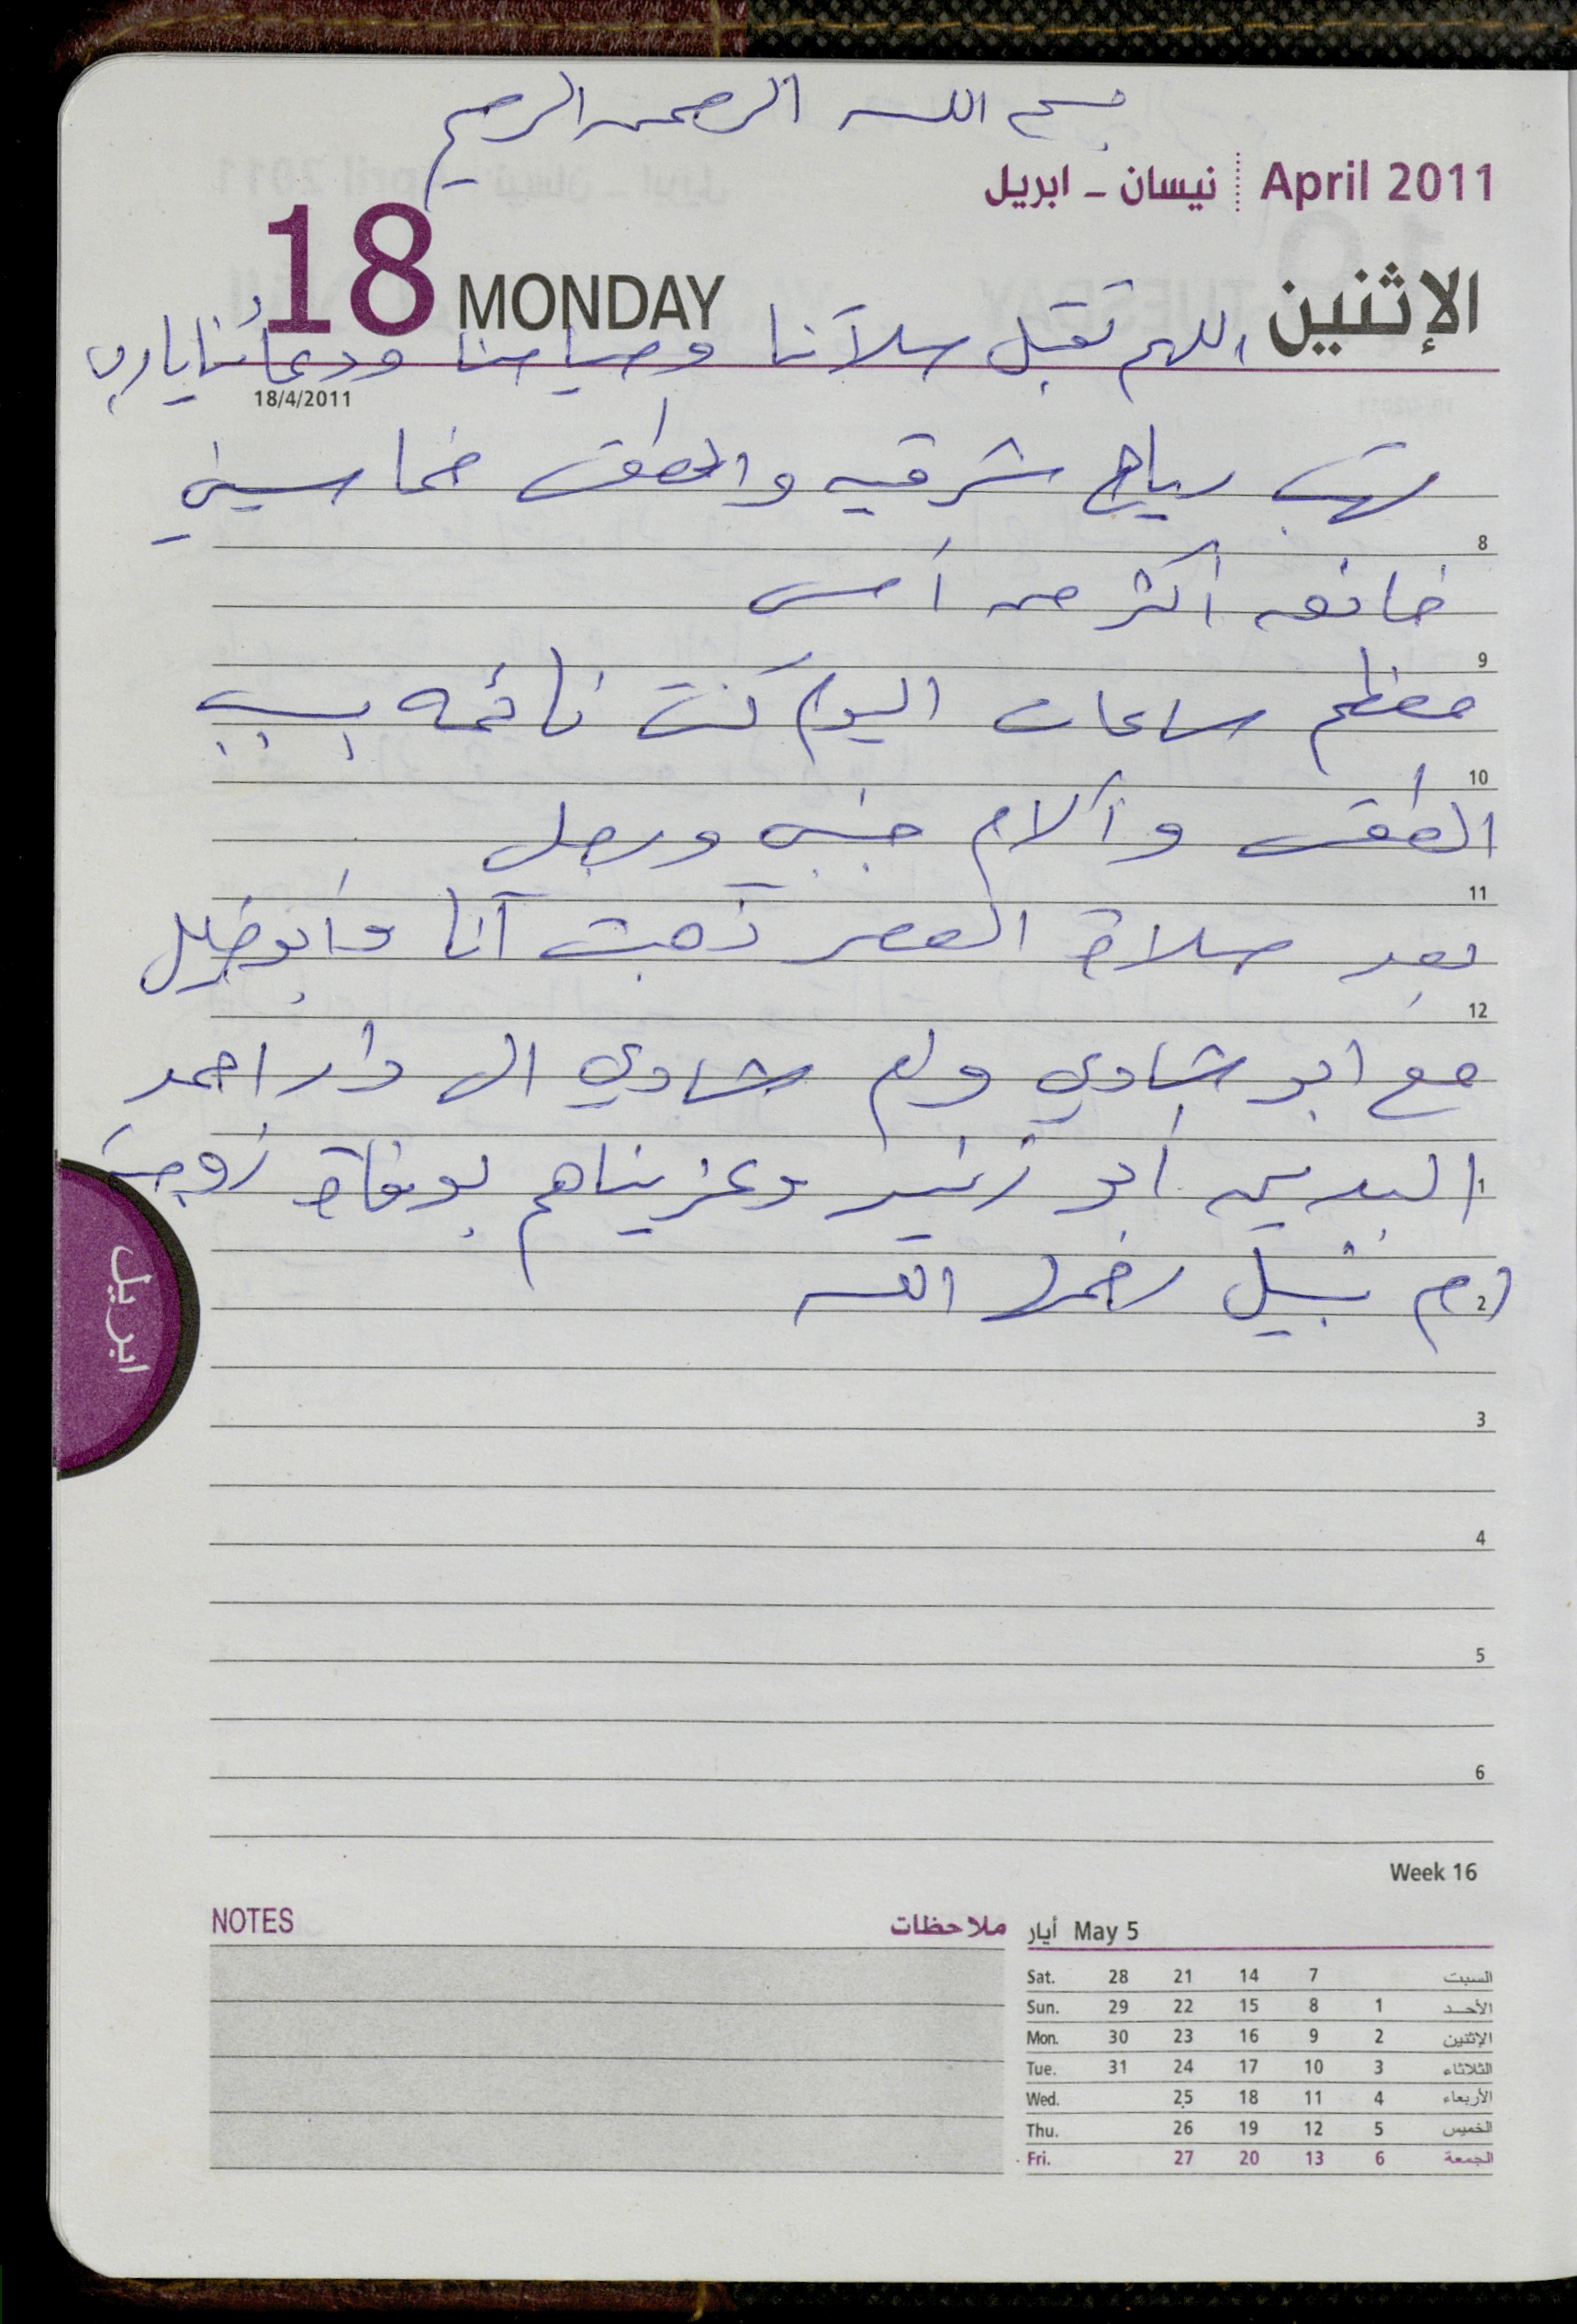 بسم الله الرحمن الرحيم
نيسان - ابريل April 2011
18 MONDAY الإثنين
اللهم تقبل صلاتنا وصيامنا ودعائنا يارب
18/4/2011
تهب رياح شرقيه والطقس خماسيني
8
خانقه أكثر من أمس
9
معظم ساعات اليوم كنت نائمه بسبب
10
الطقس وآلام جنبي ورجلي
11
بعد صلاة العصر ذهبت أنا وأبو خليل
12
مع ابو شادي وام شادي الى دار احمد
1 البدرين أبو زنيد وعزيناهم بوفاة زوجته
2 ام نبيل رحمها الله
ابريل
3
4
5
6
Week 16
NOTES ملاحظات
أيار May 5
Sat. 28 21 14 7 السبت
Sun. 29 22 15 8 1 الأحد
Mon. 30 23 16 9 2 الإثنين
Tue. 31 24 17 10 3 الثلاثاء
Wed. 25 18 11 4 الأربعاء
Thu. 26 19 12 5 الخميس
Fri. 27 20 13 6 الجمعة